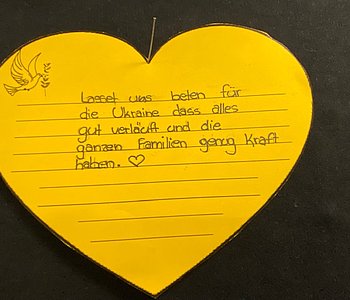 Lasset uns beten für
die Ukraine dass alles
gut verläuft und die
ganzen Familien genug Kraft
haben. ♡